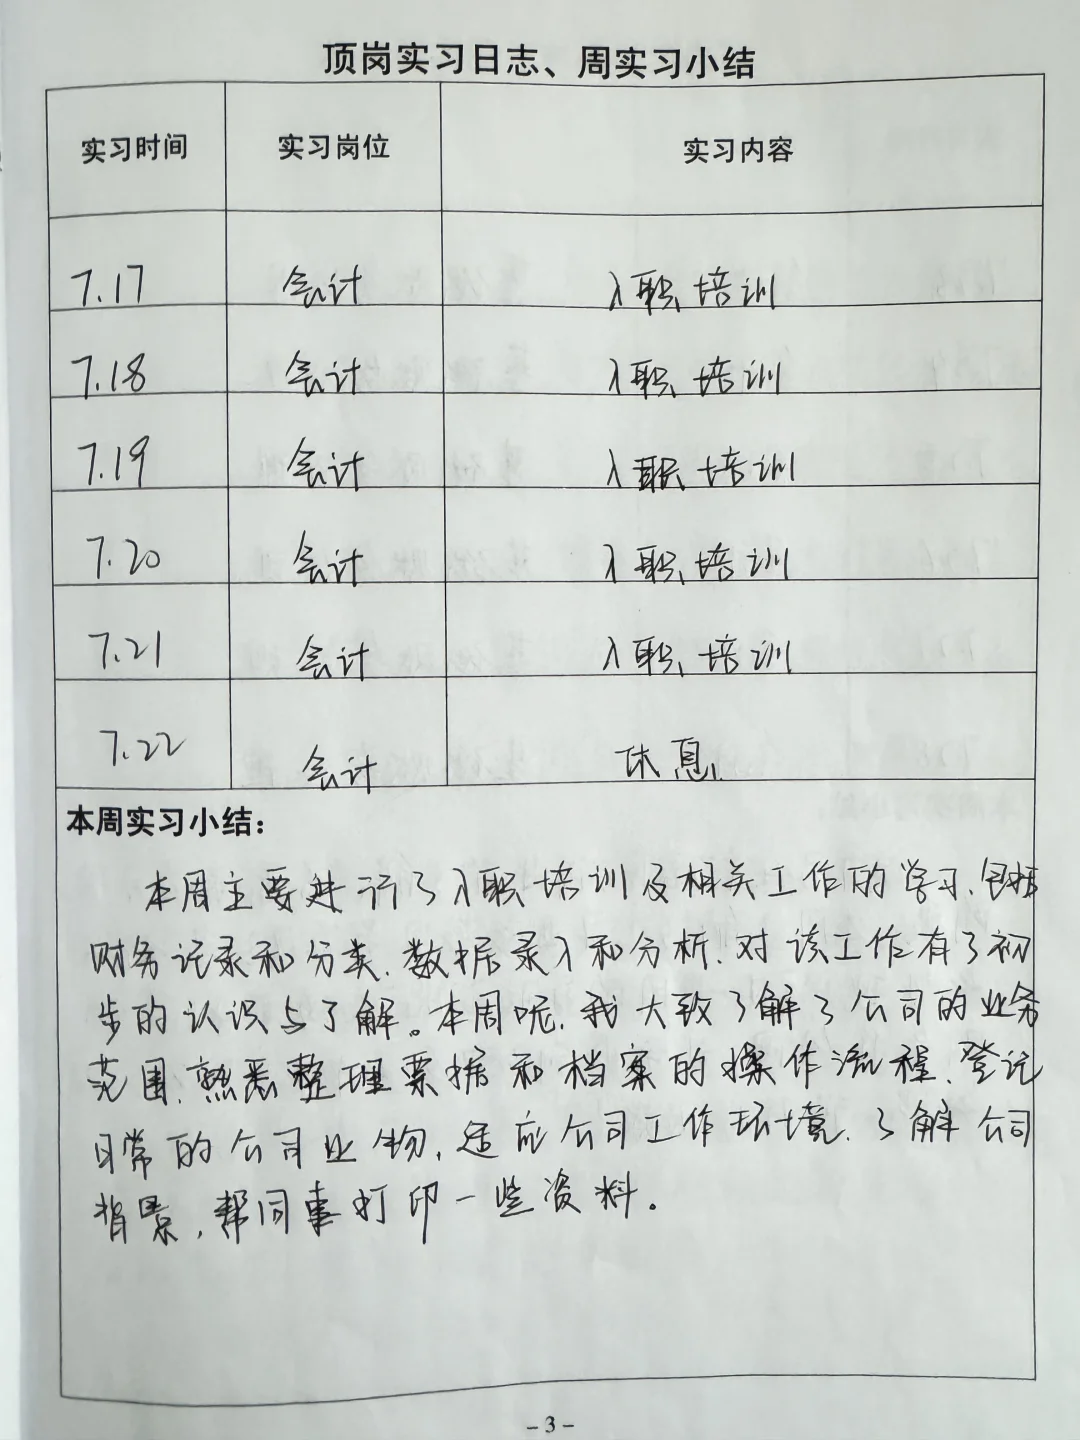 顶岗实习日志、周实习小结
实习时间 实习岗位 实习内容
7.17 会计 入职培训
7.18 会计 入职培训
7.19 会计 入职培训
7.20 会计 入职培训
7.21 会计 入职培训
7.22 会计 休息
本周实习小结：
本周主要进行了入职培训及相关工作的学习、包括
财务记录和分类、数据录入和分析、对该工作有了初
步的认识与了解。本周呢、我大致了解了公司的业务
范围、熟悉整理票据和档案的操作流程、登记
日常的公司业物、适应公司工作环境、了解公司
背景，帮同事打印一些资料。
-3-